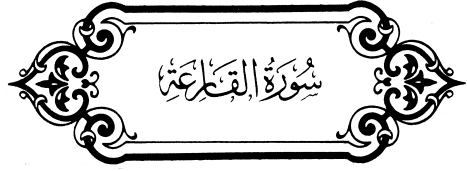 سُورَةُ الْقَارِعَةِ